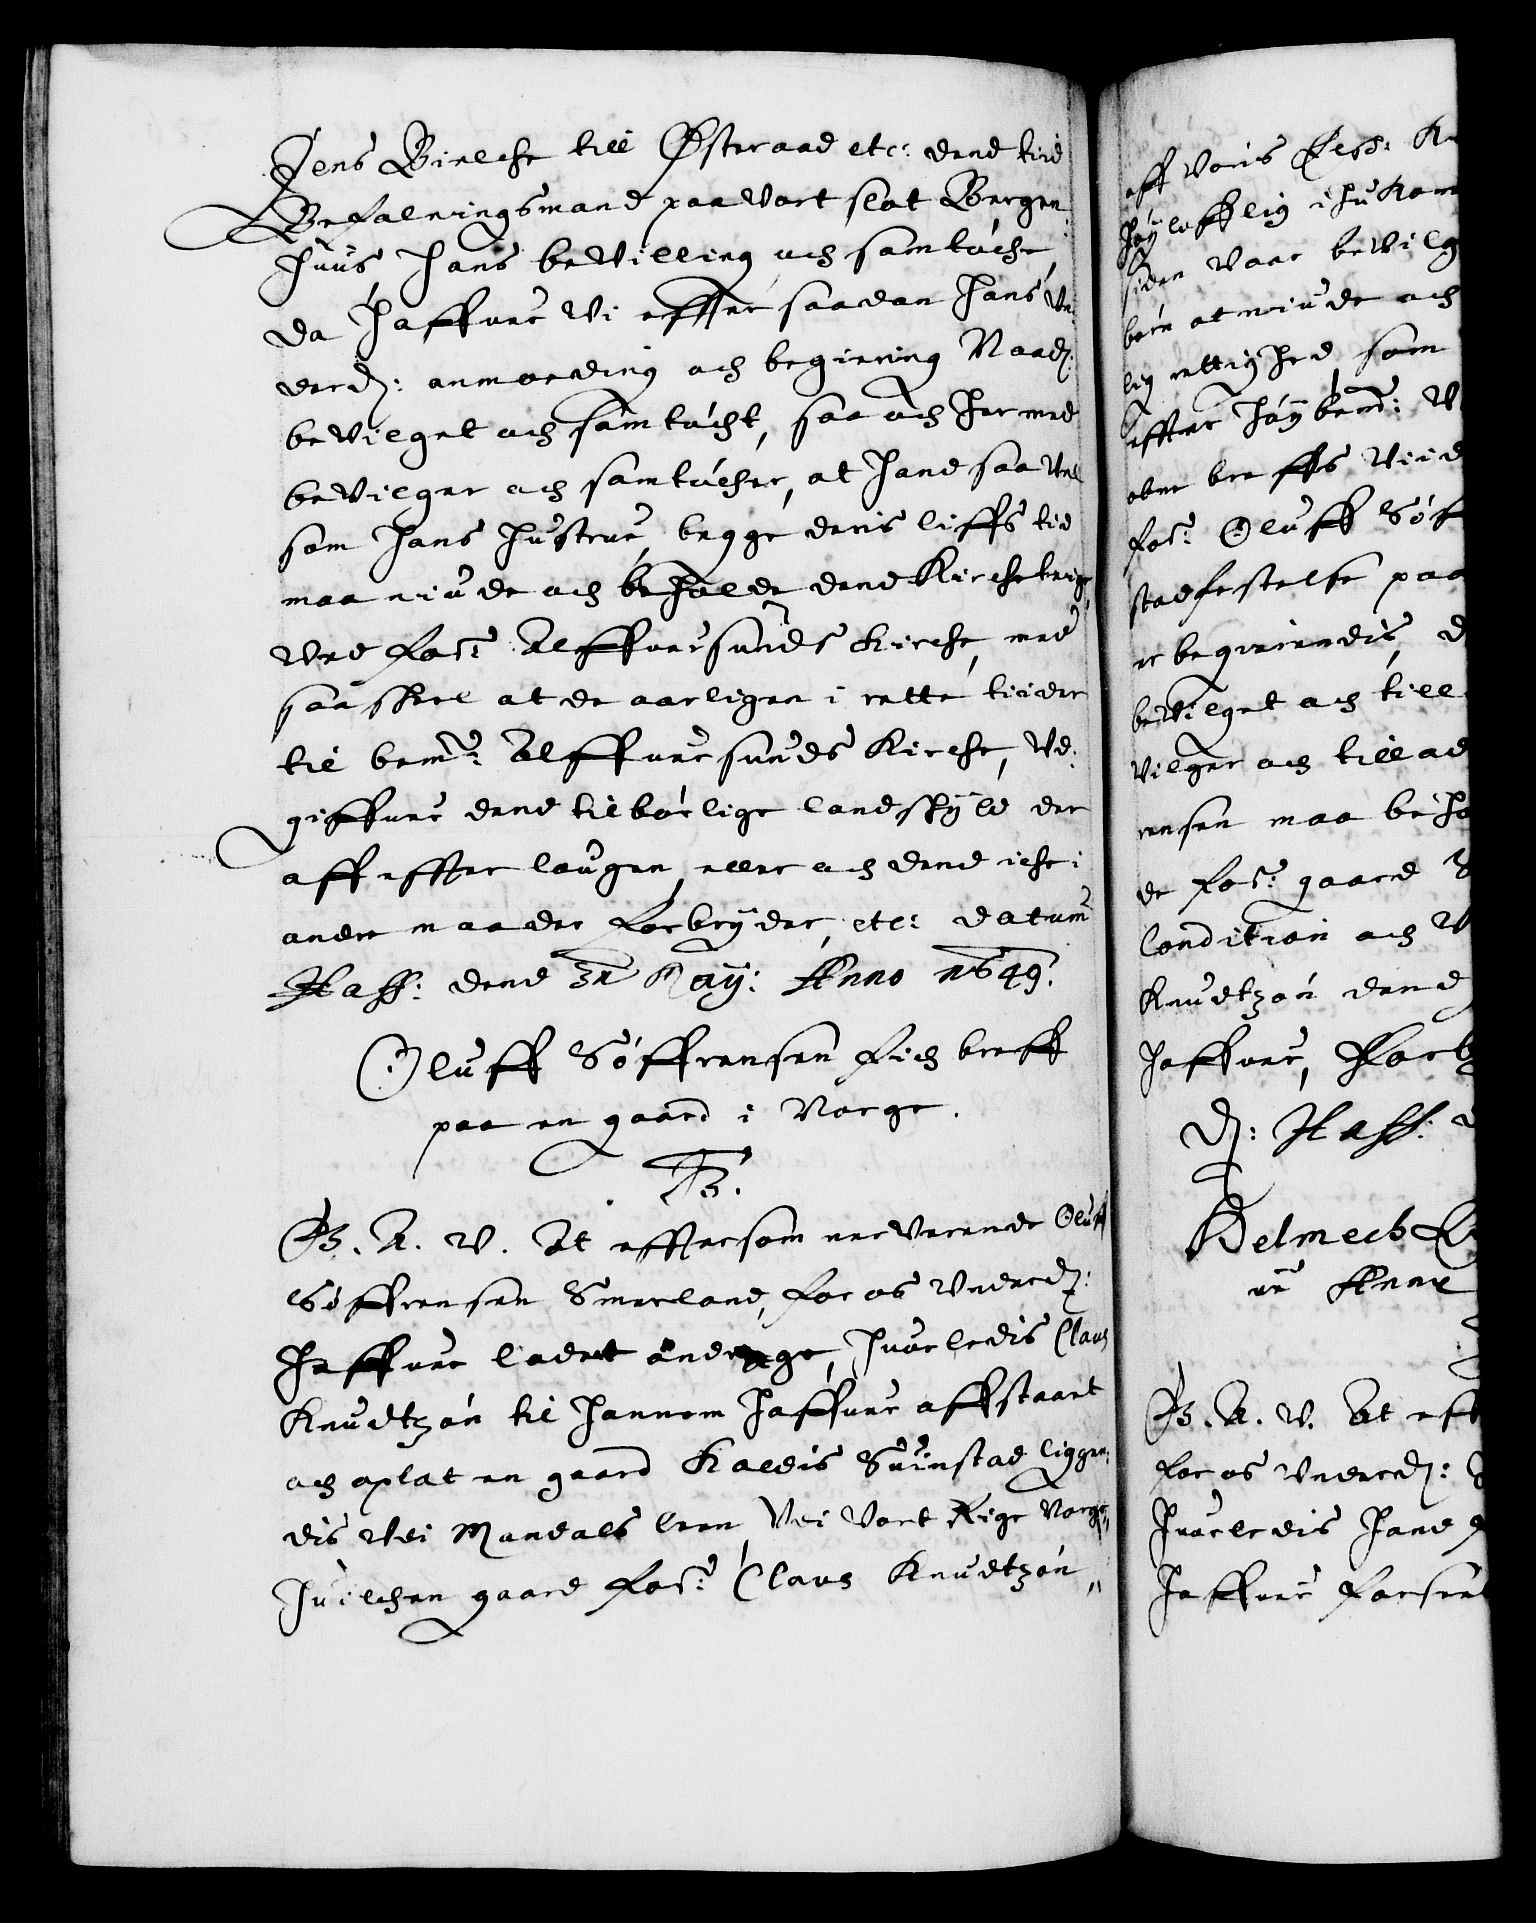 Jens Bielche till Østeraad etc: dend tiid
Befalningsmand paa Vort slot Bergen
huus hans bevilling och samtøche,
da haffuer Vi effter saadan hans Vn
derd: anmoding och begiering Naad:
bevilget och samtøcht, saa och her med
bevilger och samtøcher, at hand saa Vel
som hans hustrue, begge deris liffs tid
maa niude och beholde dend Kirche
Ved for: Alffuersunds Kirche, med
saa skel at de aarligen i rette tiider
til bem: Alffuersunds Kirche, Vd
giffuer dend tilbørlige landskyld der
aff effter lougen, eller och dend iche i
andre maader forbryder, etc: datum
Haff: dend 31 May: Anno 1649.
Oluff Søffrensen fich breff
paa en gaard i Norge.
F3.
G. A. V. At effter som nerverende Oluff
Søffrensen Smerland, for os Vnderd:
haffuer ladet andrage, huorledis Claus
Knudtzøn til hannem haffuer affstaaet
och oplat en gaard Kaldis Suinstad liggen
dis Vdi Mandals leen Vdi Vort Rige Norge,
huilchen gaard for: Claus Knudtzøn
aff Voris
høylofflig ihu Kom
siden Vaar bevilg
børn at niude och
lig rettighed som
effter høybem:
obne breffs Viid
for: Oluff Søf
stadfestelse paa
er begierendis, d
bevilget och till
vilger och tillad
ensen maa beho
de for: gaard
Condition och V
Knudtzøn dend
haffuer, Forb
D: Haff:
Helmech
Anne
G. A. V. At eff
for os Vnderd:
huorledis hand
haffuer